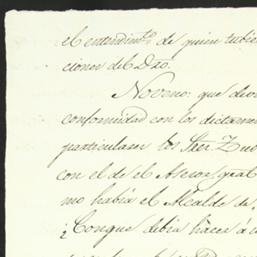 el entendim.to de quien tubie
ciones del Dro.
Noveno: que deo
conformidad con los dictam
particulares los Sres.
con el de el Asesor gral
mo había el Alcalde de
¿Conque debia háces á